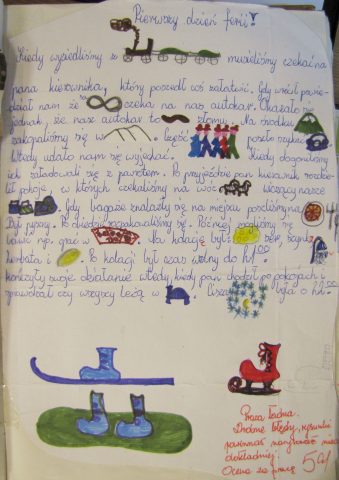 Pierwszy dzień ferii!
Kiedy wysiedliśmy z musieliśmy czekać na
pana kierownika, który poszedł coś załatwić. Gdy wrócił powie-
dział nam że czeka na nas autokar. Okazało się
jednak, że nasz autokar to złomu. Na środku
zakopaliśmy się w . Część poszło szukać
Wtedy udało nam się wyjechać. Kiedy dogoniliśmy
ich załadowali się z powrotem. Po przyjeździe pan kierownik rozdzie-
lił pokoje, w których czekaliśmy na wóz wiozący nasze
Gdy bagaże znalazły się na miejscu poszliśmy na
Był pyszny. Po obiedzie rozpakowaliśmy się. Później zajęliśmy się
bawić np. grać w Na kolację był ser, szynka
herbata i . Po kolacji był czas wolny do
kończyły swoje działanie wtedy kiedy pan chodził po pokojach i
sprawdzał czy wszyscy leżą w Cisza była o
Praca ładna.
Drobne błędy, rysunki
powinnaś narysować
dokładniej.
Ocena za pracę 5